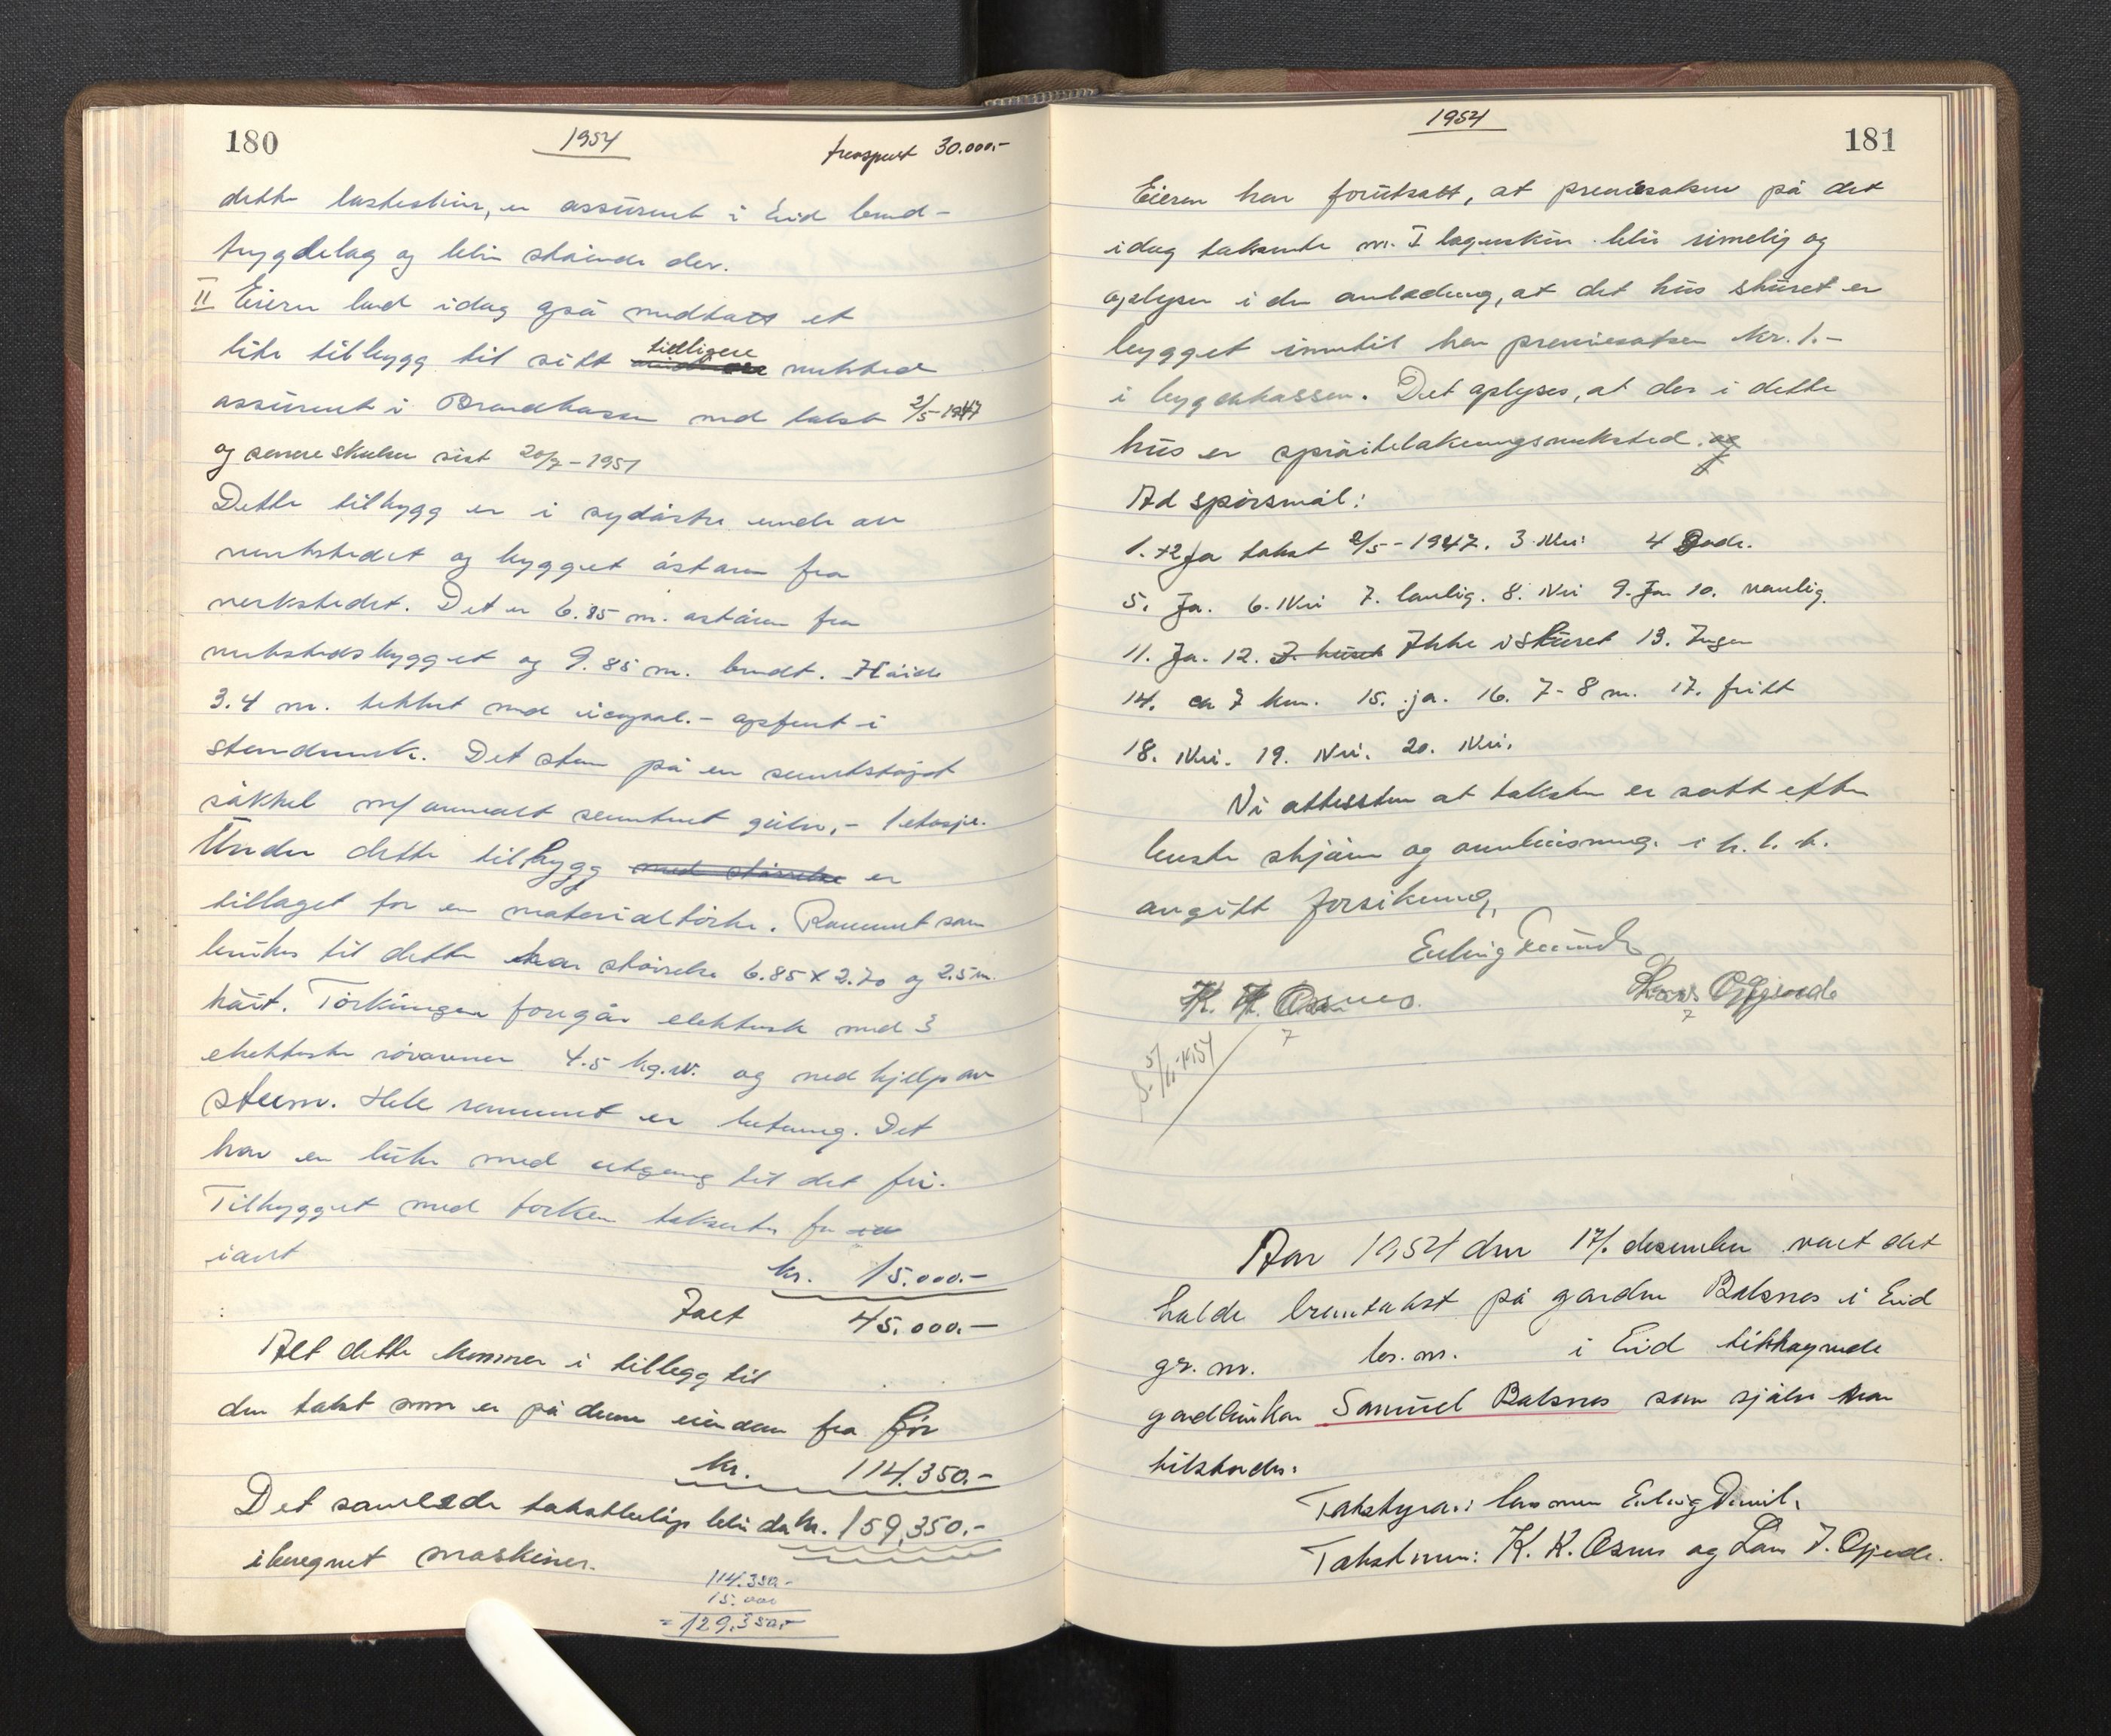 180
1954
transport 30.000.-
dette lasteskur, er assurert i Eid brand-
trygdelag og blir stående der.
II Eieren lod idag også medtatt et
lite tilbygg til sitt tidligere verksted
assurert i Brandkassen med takst 2/5-1947
og senere skulen sist 20/7-1951
Dette tilbygg er i sydøstre ende av
verkstedet og bygget østover fra
verkstedet. Det er 6.85 m. østover fra
verkstedsbygget og 9.85 m. bredt. Høide
3.4 m. tekket med - opført i
stenderverk. Det står på en sementstøpt
såkkel m/ sementert gulv, - 1 etasje.
Under dette tilbygg med større er
tillaget for en materialtørke. Rommet som
brukes til dette har størrelse 6.85 x 2.70 og 2.5 m.
høit. Tørkingen foregår elektrisk med 3
elektriske rørovner 4.5 kg.w. og med hjelp av
steem. Hele rommet er betong. Det
har en luke med utgang til det fri.
Tilbygget med torken takseres for
iart
kr. 15.000.-
Ialt 45.000.-
Alt dette kommer i tillegg til
den takst som er på denne eiendom fra før
kr. 114.350.-
Det samlede takstbeløp blir da kr. 159.350.-
iberegnet maskiner.
114.350.-
15.000
= 129.350.-
1954
181
Eieren har forutsatt, at premiesatsen på det
idag takserte nr. I lagerskur blir rimelig og
oplyser i den anledning, at det hus skuret er
bygget inntil har premiesatsen kr. 1.-
i bygdekassen. Det oplyses, at der i dette
hus er sprøitelakeringsverksted. og
Ad spørsmål:
1.+2 Ja takst 2/5-1947. 3. Nei 4 Gode.
5. Ja. 6. Nei 7. lovlig. 8. Nei 9. Ja 10. vanlig.
11. Ja. 12. I huset Ikke i skuret 13. Ingen
14. ca 7 km. 15. ja. 16. 7-8 m. 17. fritt
18. Nei. 19. Nei. 20. Nei.
Vi attesterer at taksten er satt efter
beste skjønn og overbevisning. i h. t. h.
avgitt forsikring,
Erling
K. K. Osnes.
Lars Ojjerde
5/11-1954
Aar 1954 den 17/. desember vart det
halde branntakst på garden Baksnes i Eid
gr. nr. br. nr. i Eid tilhøyrande
gardbrukar Samuel Baksnes som sjølv var
tilstades.
Takstyrar: lensmann Erling
Takstmenn: K. K. Osnes og Lars J. Ojjerde.